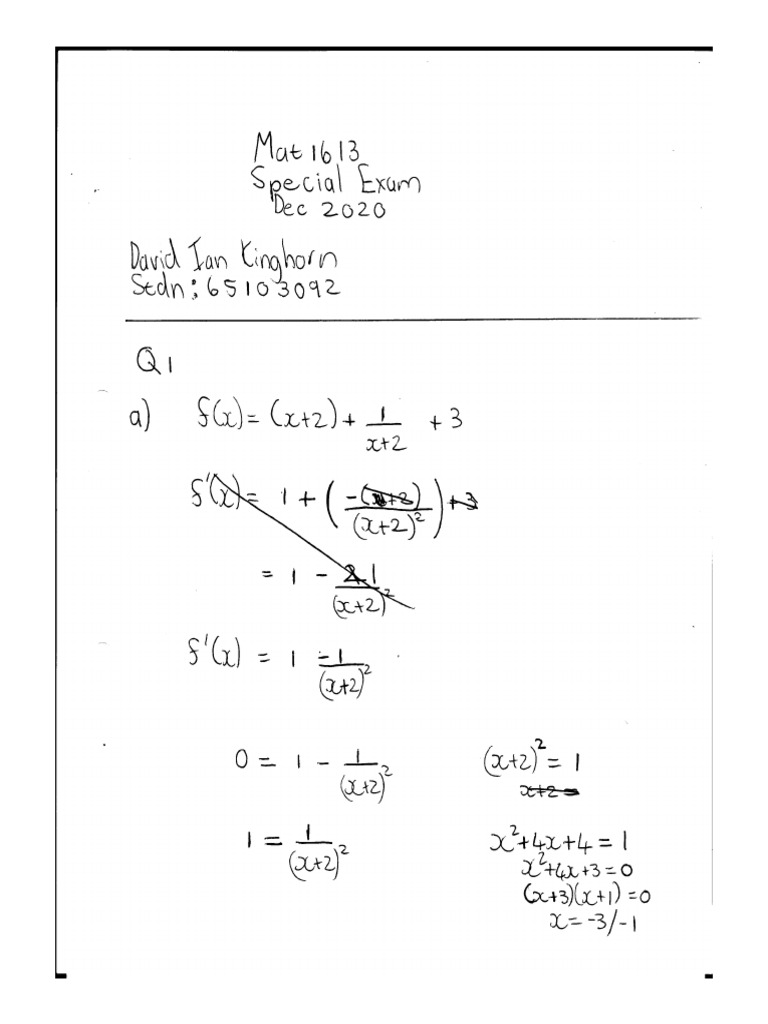 Mat 1613
Special Exam
Dec 2020
David Ian Kinghorn
Stdn: 65103092
Q1
a) f(x) = (x+2) + 1/(x+2) + 3
f'(x) = 1 + (-(x+2)/(x+2)²) + 3
= 1 - 1/(x+2)²
f'(x) = 1 -1/(x+2)²
0 = 1 - 1/(x+2)²
1 = 1/(x+2)²
(x+2)² = 1
x+2 =
x²+4x+4 = 1
x²+4x+3 = 0
(x+3)(x+1) = 0
x = -3/-1